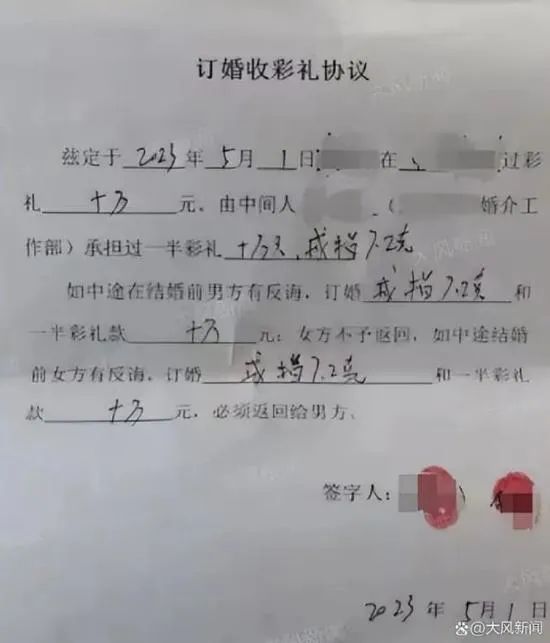 订婚收彩礼协议
兹定于 2023 年 5 月 1 日 在 过彩
礼 十万 元。由中间人 ( 婚介工
作部）承担过一半彩礼 十万元，戒指7.2克
如中途在结婚前男方有反海，订婚 戒指7.2克 和
一半彩礼款 十万 元；女方不予返回，如中途结婚
前女方有反海，订婚 戒指7.2克 和一半彩礼
款 十万 元，必须返回给男方、
签字人:
2023 年 5月 1 日
大风新闻